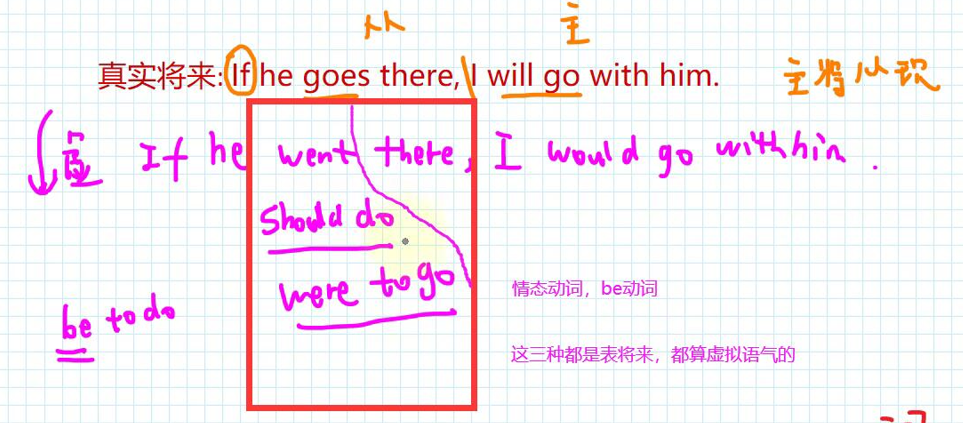 从 主
真实将来: If he goes there, I will go with him. 主将从现
虚 If he went there, I would go with him.
should do
were to go
情态动词，be动词
be to do
这三种都是表将来，都算虚拟语气的